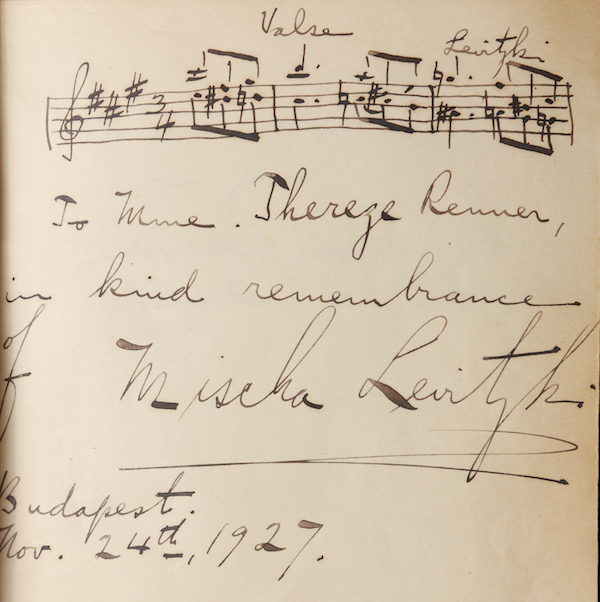 Valse
Levitzki.
3
4
To Mme. Thereze Renner,
in kind remembrance
of
Mischa Levitzki.
Budapest.
Nov. 24th, 1927.